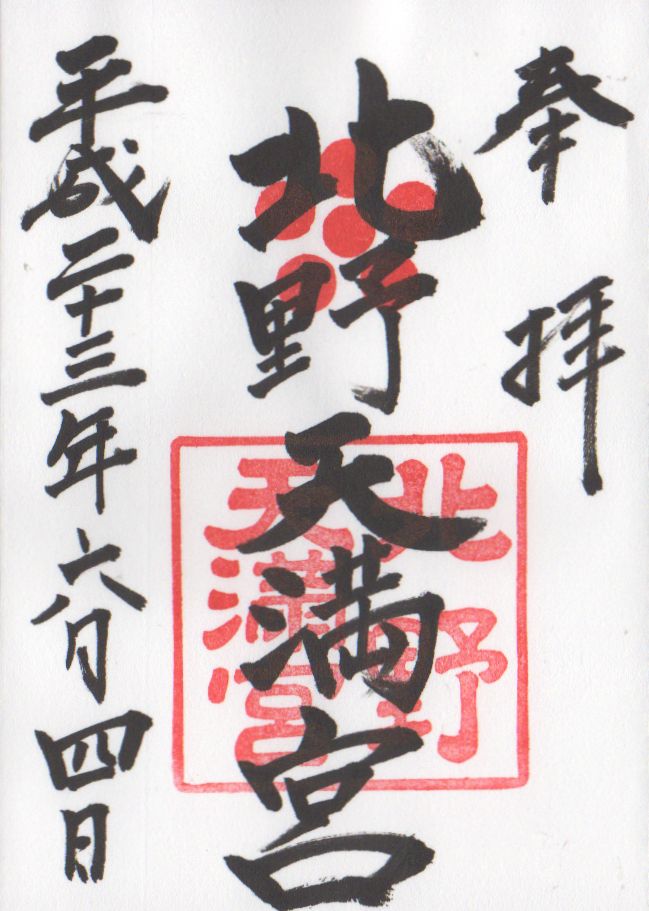 奉拝
北野天満宮
北野
天満宮
平成二十三年六月四日